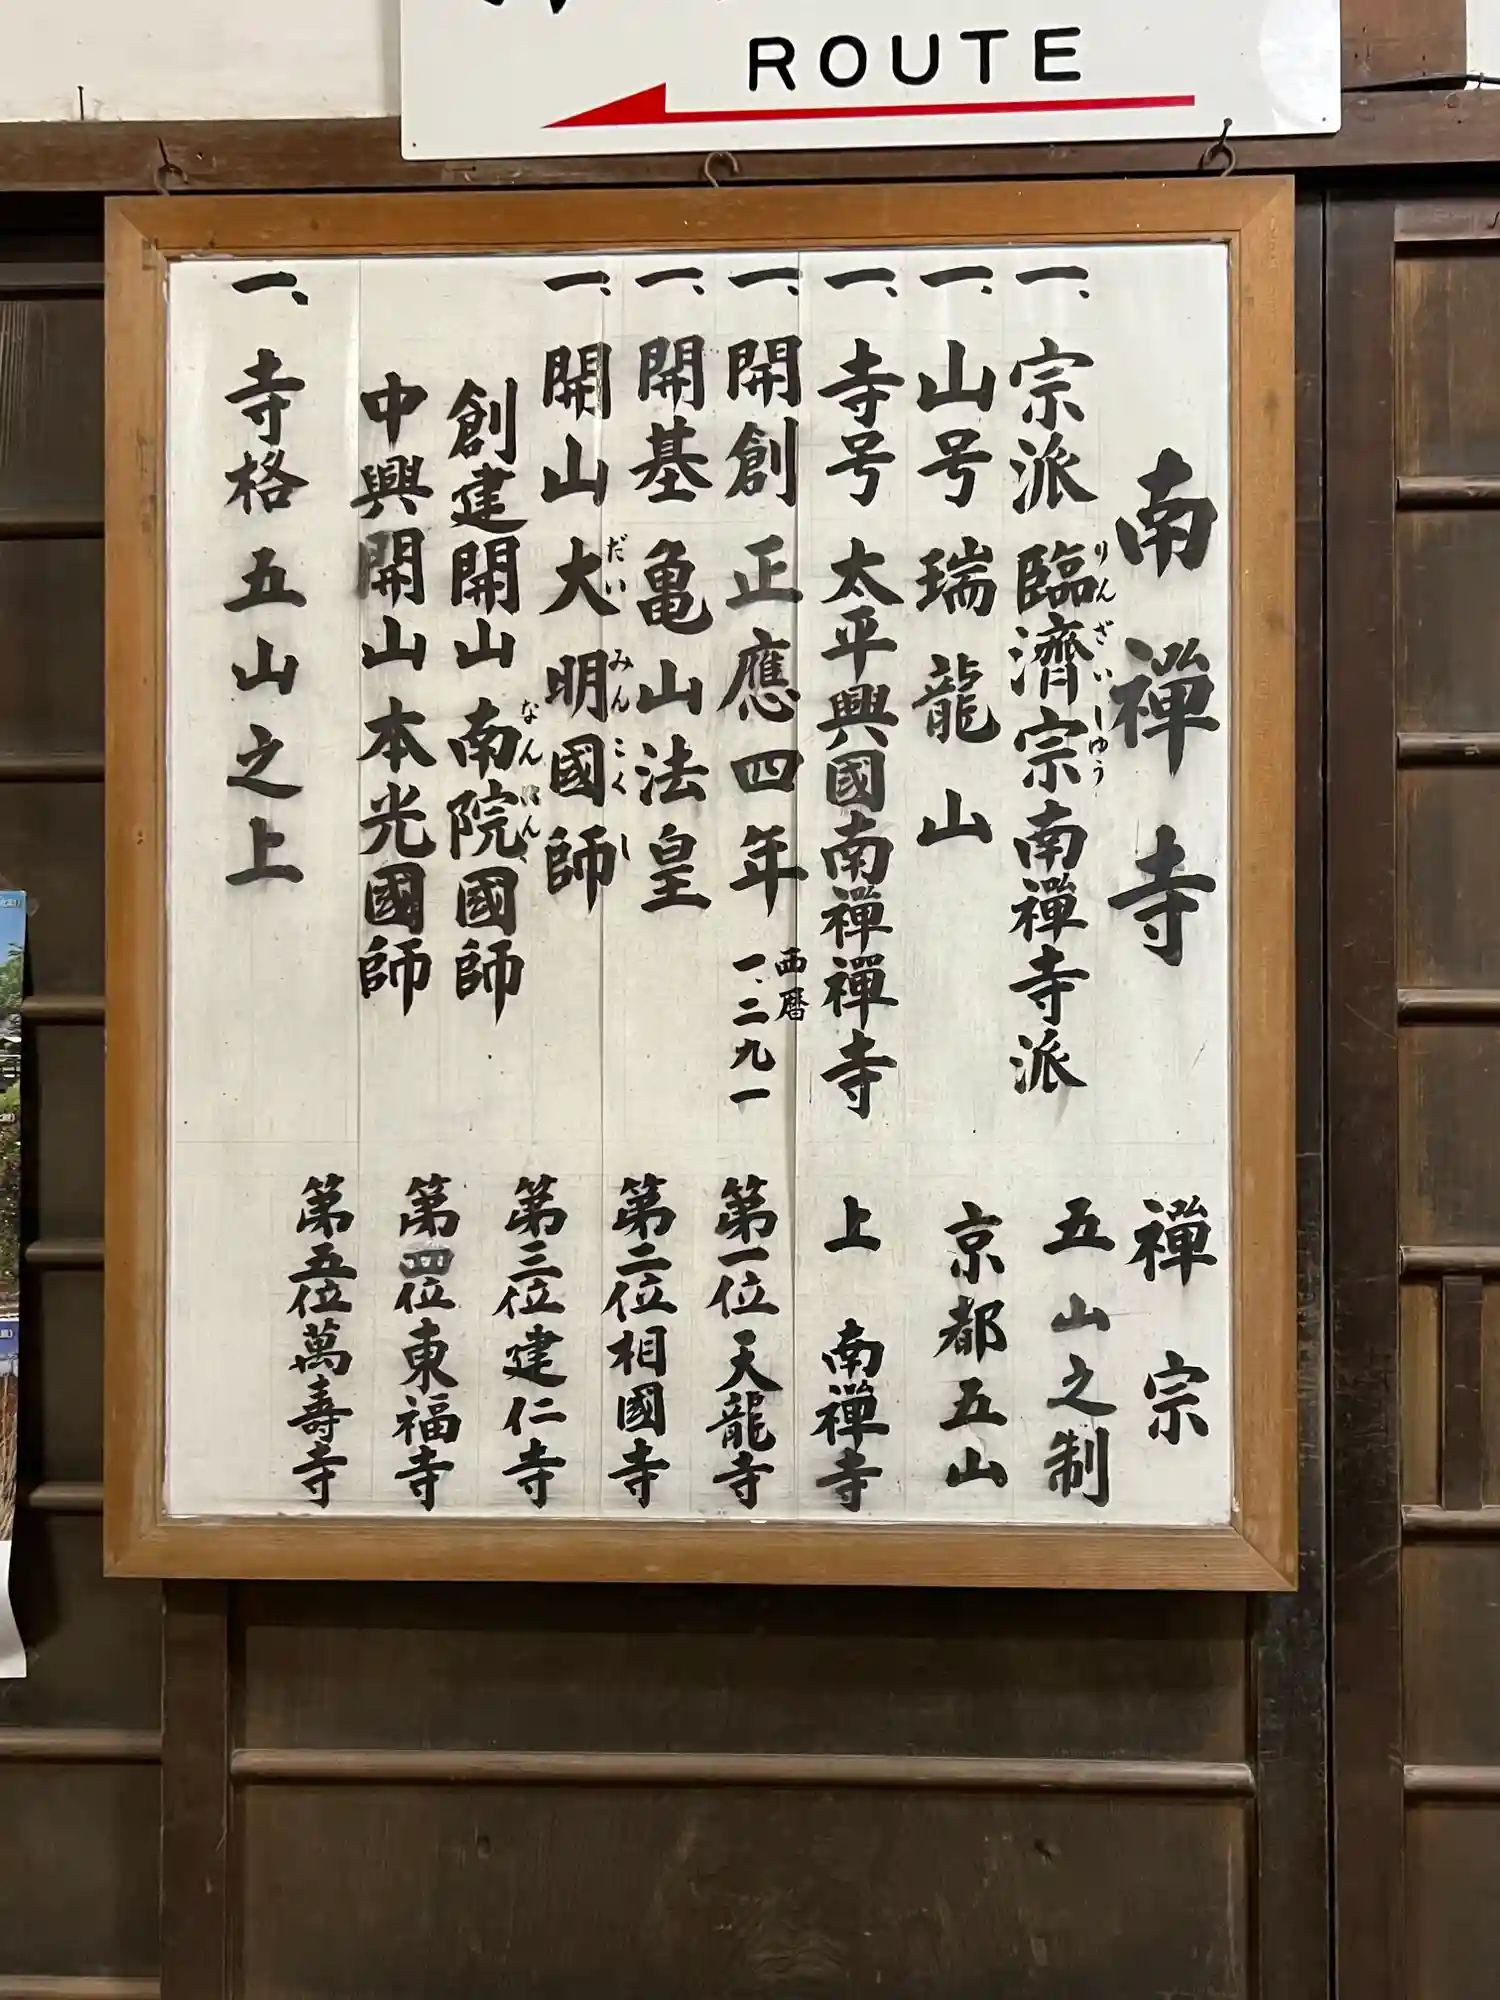 ROUTE
南禅寺
一、宗派 臨濟宗南禅寺派
りんざいしゆう
一、山号 瑞龍山
一、寺号 太平興國南禅禅寺
一、開創 正應四年 西暦一、二九一
一、開基 亀山法皇
一、開山 大明國師
だいみんこくし
創建開山 南院國師
なんいん
中興開山 本光國師
一、寺格 五山之上
禅宗
五山之制
京都五山
上 南禅寺
第一位 天龍寺
第二位 相國寺
第三位 建仁寺
第四位 東福寺
第五位 萬壽寺